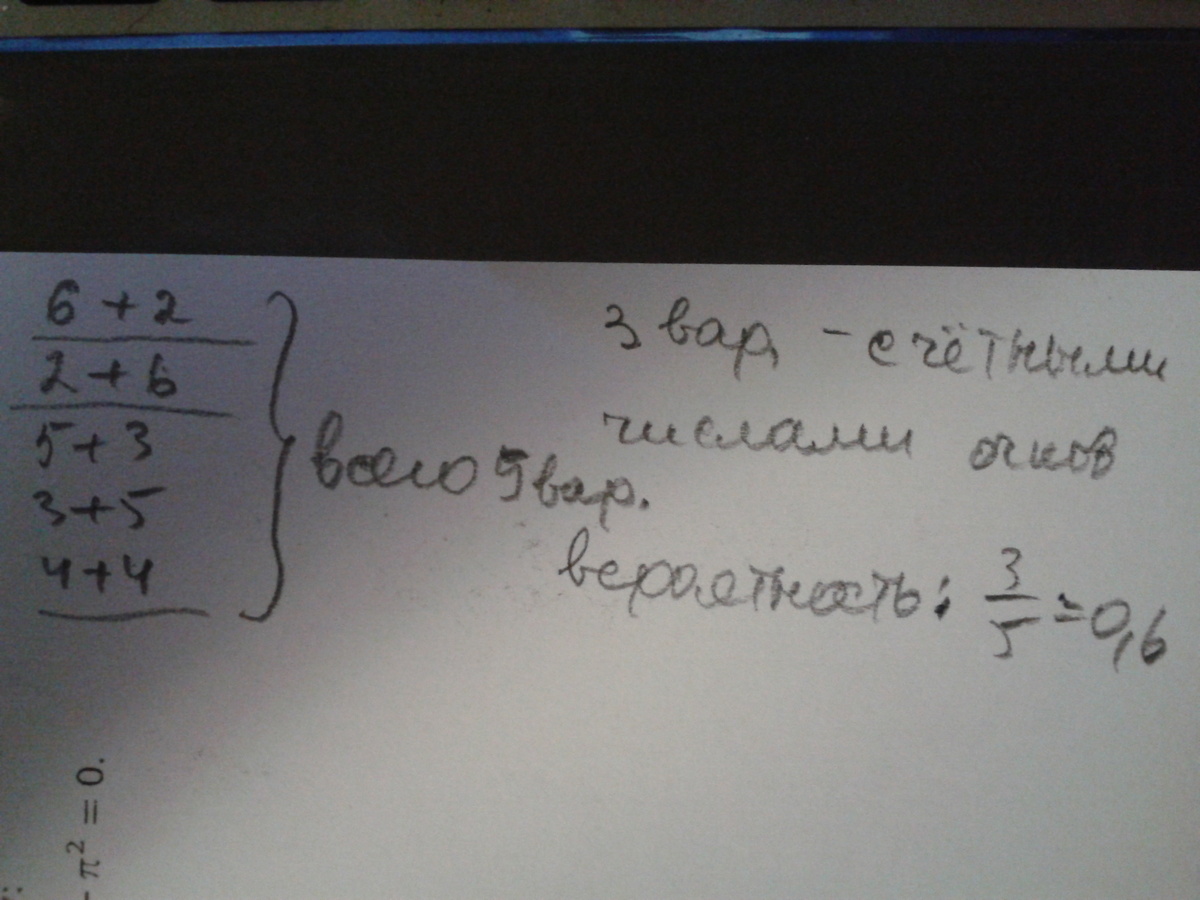 6 + 2
2 + 6
5 + 3
3 + 5
4 + 4
всего 5 вар.
3 вар. - с чётными
числами очков
вероятность: 3/5 = 0,6
- π² = 0.